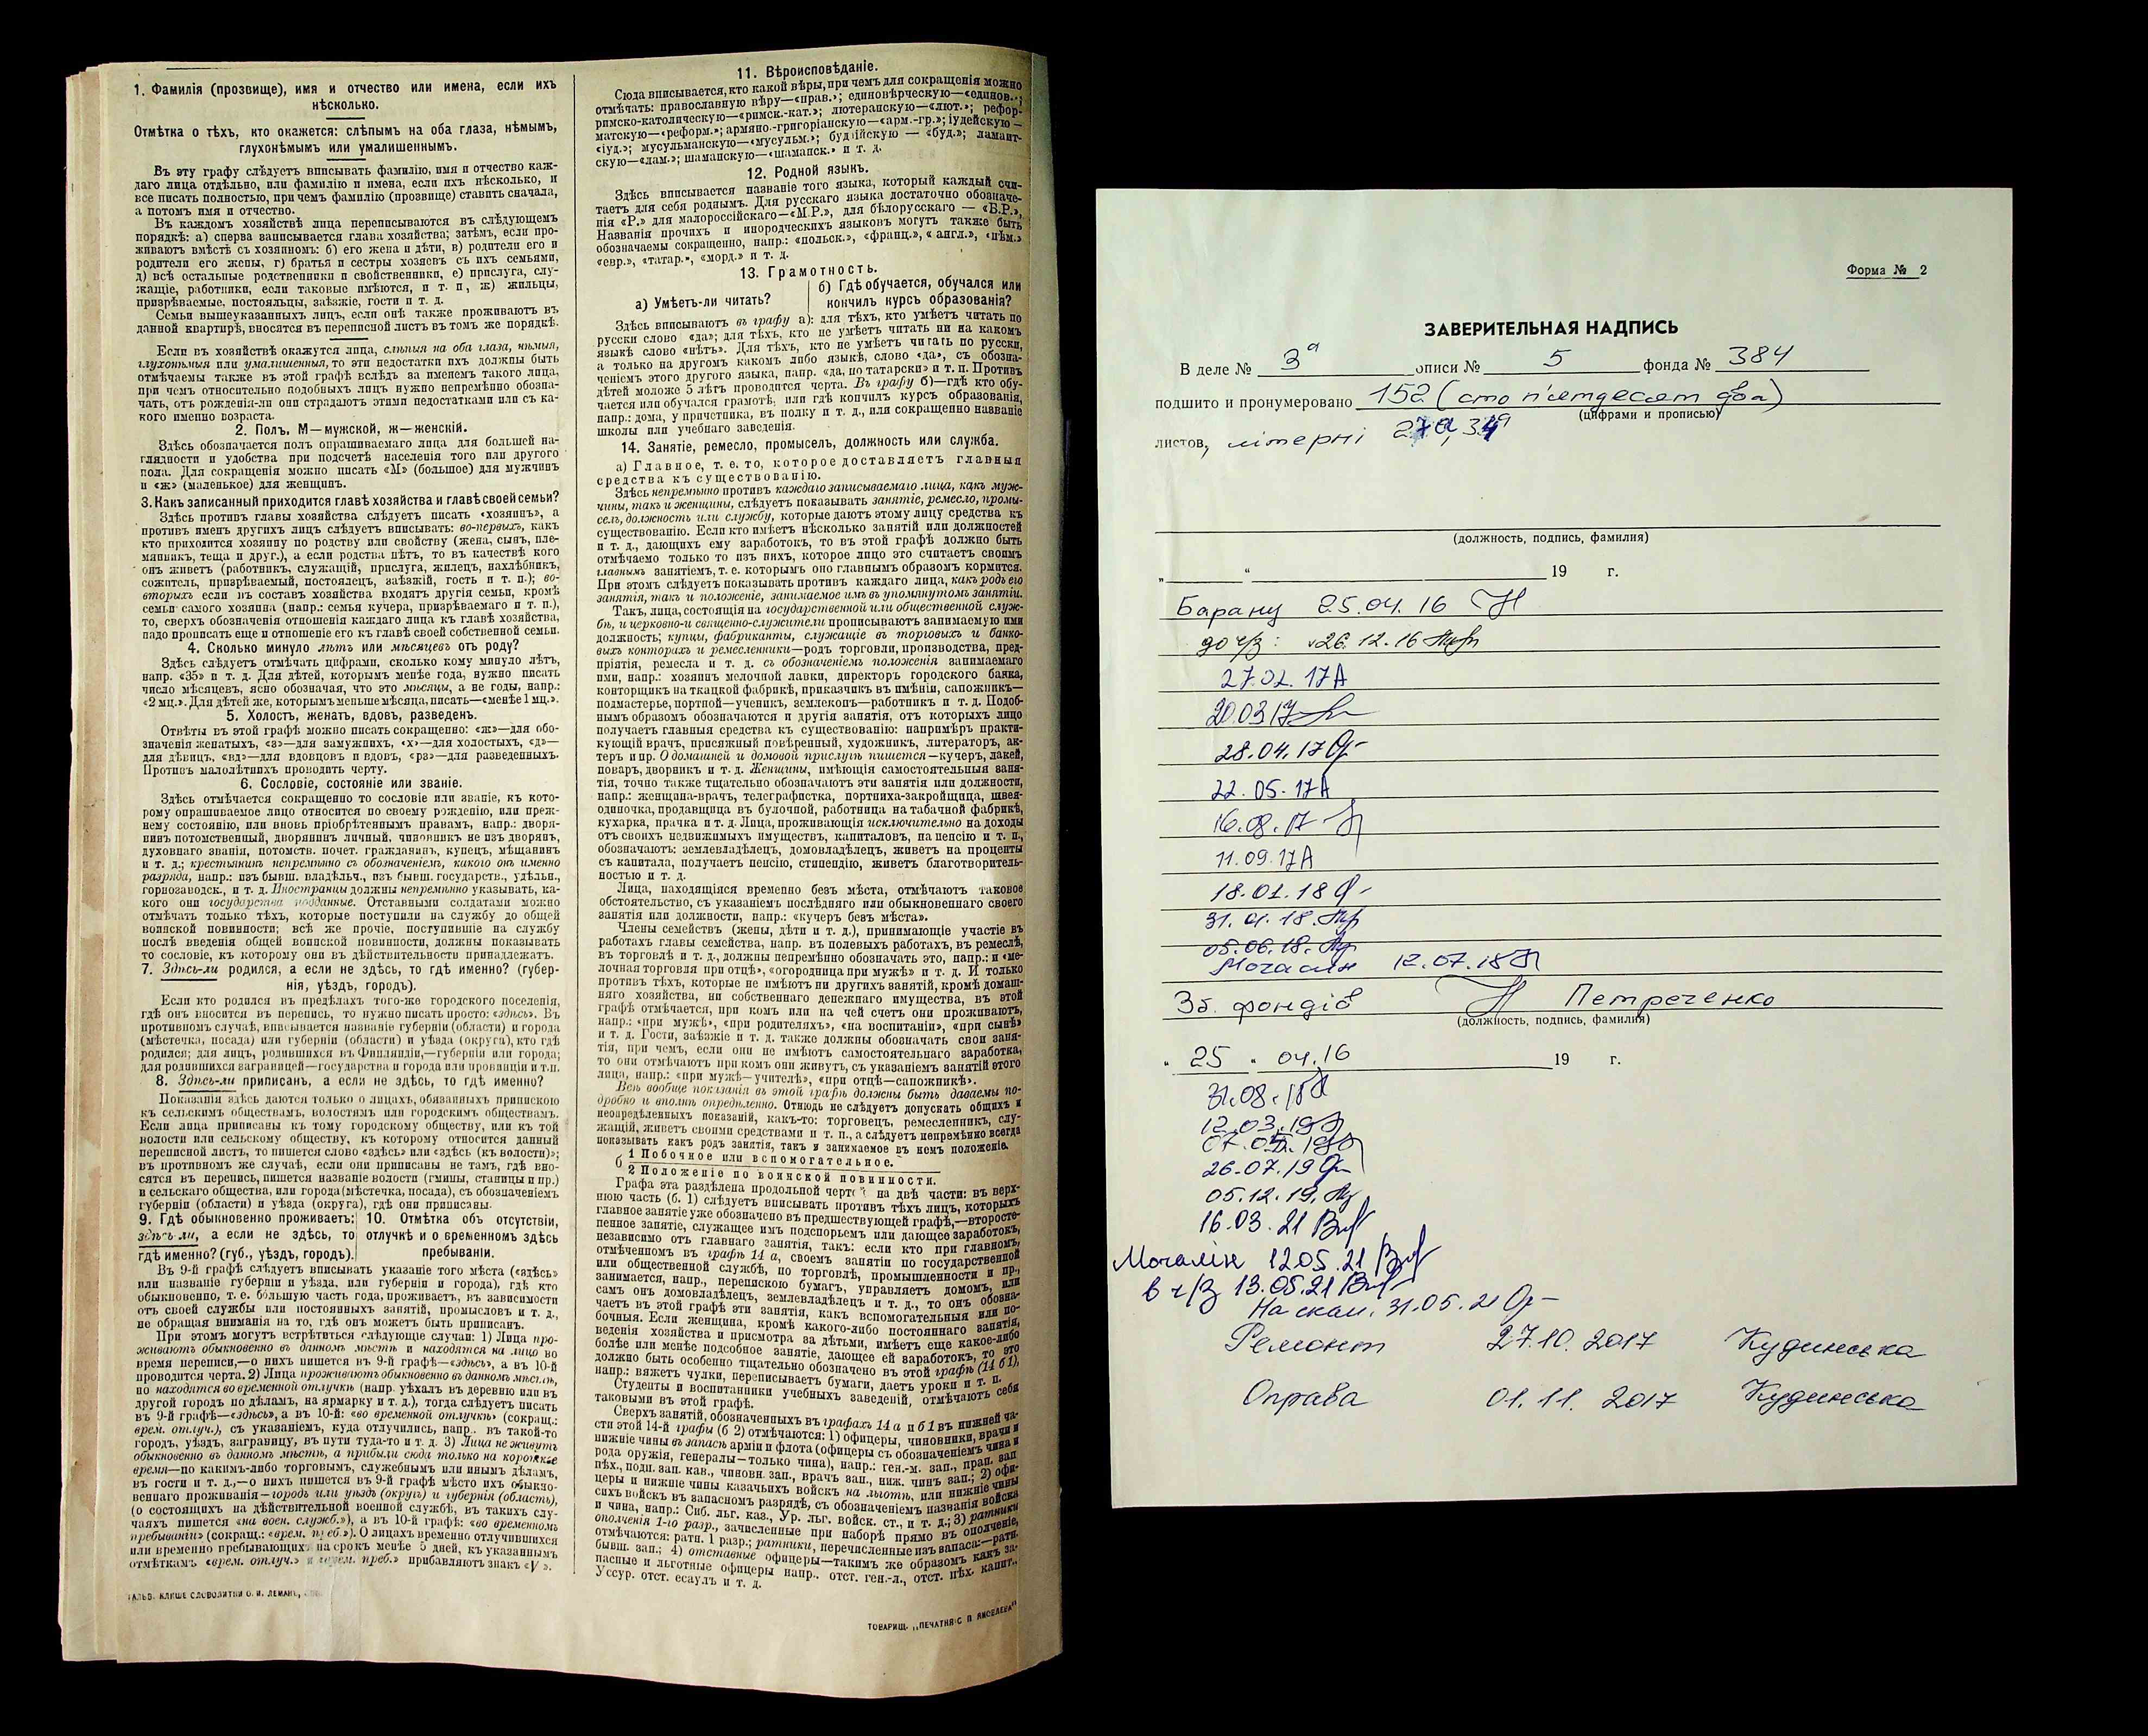 1. Фамилія (прозвище), имя и отчество или имена, если ихъ
нѣсколько.
Отмѣтка о тѣхъ, кто окажется: слѣпымъ на оба глаза, нѣмымъ,
глухонѣмымъ или умалишеннымъ.
Въ эту графу слѣдуетъ вписывать фамилію, имя и отчество каж-
даго лица отдѣльно, или фамилію и имена, если ихъ нѣсколько, и
все писать полностью, при чемъ фамилію (прозвище) ставить сначала,
а потомъ имя и отчество.
Въ каждомъ хозяйствѣ лица переписываются въ слѣдующемъ
порядкѣ: а) сперва записывается глава хозяйства; затѣмъ, если про-
живаютъ вмѣстѣ съ хозяиномъ: б) его жена и дѣти, в) родители его и
родители его жены, г) братья и сестры хозяевъ съ ихъ семьями,
д) всѣ остальные родственники и свойственники, е) прислуга, слу-
жащіе, работники, если таковые имѣются, и т. п, ж) жильцы,
призрѣваемые, постояльцы, заѣзжіе, гости и т. д.
Семьи вышеуказанныхъ лицъ, если онѣ также проживаютъ въ
данной квартирѣ, вносятся въ переписной листъ въ томъ же порядкѣ.
Если въ хозяйствѣ окажутся лица, слѣпыя на оба глаза, нѣмыя,
глухонѣмыя или умалишенныя, то эти недостатки ихъ должны быть
отмѣчаемы также въ этой графѣ вслѣдъ за именемъ такого лица,
при чемъ относительно подобныхъ лицъ нужно непремѣнно обозна-
чать, отъ рожденія-ли они страдаютъ этими недостатками или съ ка-
кого именно возраста.
2. Полъ, М—мужской, ж—женскій.
Здѣсь обозначается полъ опрашиваемаго лица для большей на-
глядности и удобства при подсчетѣ населенія того или другого
пола. Для сокращенія можно писать «М» (большое) для мужчинъ
и «ж» (маленькое) для женщинъ.
3. Какъ записанный приходится главѣ хозяйства и главѣ своей семьи?
Здѣсь противъ главы хозяйства слѣдуетъ писать «хозяинъ», а
противъ именъ другихъ лицъ слѣдуетъ вписывать: во-первыхъ, какъ
кто приходится хозяину по родству или свойству (жена, сынъ, пле-
мянникъ, теща и друг.), а если родства нѣтъ, то въ качествѣ кого
онъ живетъ (работникъ, служащій, прислуга, жилецъ, нахлѣбникъ,
сожитель, призрѣваемый, постоялецъ, заѣзжій, гость и т. п.); во-
вторыхъ если въ составъ хозяйства входятъ другія семьи, кромѣ
семьи самого хозяина (напр.: семья кучера, призрѣваемаго и т. п.),
то, сверхъ обозначенія отношенія каждаго лица къ главѣ хозяйства,
надо прописать еще и отношеніе его къ главѣ своей собственной семьи.
4. Сколько минуло лѣтъ или мѣсяцевъ отъ роду?
Здѣсь слѣдуетъ отмѣчать цифрами, сколько кому минуло лѣтъ,
напр. «35» и т. д. Для дѣтей, которымъ менѣе года, нужно писать
число мѣсяцевъ, ясно обозначая, что это мѣсяцы, а не годы, напр.:
«2 мц.». Для дѣтей же, которымъ меньше мѣсяца, писать—«менѣе 1 мц.».
5. Холостъ, женатъ, вдовъ, разведенъ.
Отвѣты въ этой графѣ можно писать сокращенно: «ж»—для обо-
значенія женатыхъ, «з»—для замужнихъ, «х»—для холостыхъ, «д»—
для дѣвицъ, «вд»—для вдовцовъ и вдовъ, «рз»—для разведенныхъ.
Противъ малолѣтнихъ проводить черту.
6. Сословіе, состояніе или званіе.
Здѣсь отмѣчается сокращенно то сословіе или званіе, къ кото-
рому опрашиваемое лицо относится по своему рожденію, или преж-
нему состоянію, или вновь пріобрѣтеннымъ правамъ, напр.: дворя-
нинъ потомственный, дворянинъ личный, чиновникъ не изъ дворянъ,
духовнаго званія, потомств. почет. гражданинъ, купецъ, мѣщанинъ
и т. д.; крестьянинъ непремѣнно съ обозначеніемъ, какого онъ именно
разряда, напр.: изъ бывш. владѣльч., изъ бывш. государств., удѣльн.,
горнозаводск., и т. д. Иностранцы должны непремѣнно указывать, ка-
кого они государства подданные. Отставными солдатами можно
отмѣчать только тѣхъ, которые поступили на службу до общей
воинской повинности; всѣ же прочіе, поступившіе на службу
послѣ введенія общей воинской повинности, должны показывать
то сословіе, къ которому они въ дѣйствительности принадлежатъ.
7. Здѣсь-ли родился, а если не здѣсь, то гдѣ именно? (губер-
нія, уѣздъ, городъ).
Если кто родился въ предѣлахъ того-же городского поселенія,
гдѣ онъ вносится въ перепись, то нужно писать просто: «здѣсь». Въ
противномъ случаѣ, вписывается названіе губерніи (области) и города
(мѣстечка, посада) или губерніи (области) и уѣзда (округа), кто гдѣ
родился; для лицъ, родившихся въ Финляндіи,—губерніи или города;
для родившихся заграницей—государства и города или провинціи и т.п.
8. Здѣсь-ли приписанъ, а если не здѣсь, то гдѣ именно?
Показанія здѣсь даются только о лицахъ, обязанныхъ припискою
къ сельскимъ обществамъ, волостямъ или городскимъ обществамъ.
Если лица приписаны къ тому городскому обществу, или къ той
волости или сельскому обществу, къ которому относится данный
переписной листъ, то пишется слово «здѣсь» или «здѣсь (къ волости)»;
въ противномъ же случаѣ, если они приписаны не тамъ, гдѣ вно-
сятся въ перепись, пишется названіе волости (гмины, станицы и пр.)
и сельскаго общества, или города (мѣстечка, посада), съ обозначеніемъ
губерніи (области) и уѣзда (округа), гдѣ они приписаны.
9. Гдѣ обыкновенно проживаетъ:
здѣсь-ли, а если не здѣсь, то
гдѣ именно? (губ., уѣздъ, городъ).
10. Отмѣтка объ отсутствіи,
отлучкѣ и о временномъ здѣсь
пребываніи.
Въ 9-й графѣ слѣдуетъ вписывать указаніе того мѣста («здѣсь»
или названіе губерніи и уѣзда, или губерніи и города), гдѣ кто
обыкновенно, т. е. большую часть года, проживаетъ, въ зависимости
отъ своей службы или постоянныхъ занятій, промысловъ и т. д.,
не обращая вниманія на то, гдѣ онъ можетъ быть приписанъ.
При этомъ могутъ встрѣтиться слѣдующіе случаи: 1) Лица про-
живаютъ обыкновенно въ данномъ мѣстѣ и находятся на лицо во
время переписи,—о нихъ пишется въ 9-й графѣ—«здѣсь», а въ 10-й
проводится черта. 2) Лица проживаютъ обыкновенно въ данномъ мѣстѣ,
но находятся во временной отлучкѣ (напр. уѣхалъ въ деревню или въ
другой городъ по дѣламъ, на ярмарку и т. д.), тогда слѣдуетъ писать
въ 9-й графѣ—«здѣсь», а въ 10-й: «во временной отлучкѣ» (сокращ.:
врем. отлуч.), съ указаніемъ, куда отлучились, напр.. въ такой-то
городъ, уѣздъ, заграницу, въ пути туда-то и т. д. 3) Лица не живутъ
обыкновенно въ данномъ мѣстѣ, а прибыли сюда только на короткое
время—по какимъ-либо торговымъ, служебнымъ или инымъ дѣламъ,
въ гости и т. д.,—о нихъ пишется въ 9-й графѣ мѣсто ихъ обыкно-
веннаго проживанія—городъ или уѣздъ (округъ) и губернія (область),
(о состоящихъ на дѣйствительной военной службѣ, въ такихъ слу-
чаяхъ пишется «на воен. служб.»), а въ 10-й графѣ: «во временномъ
пребываніи» (сокращ.: «врем. преб.»). О лицахъ временно отлучившихся
или временно пребывающихъ на срокъ менѣе 5 дней, къ указаннымъ
отмѣткамъ «врем. отлуч.» и «врем. преб.» прибавляютъ знакъ «V».
ГАЛЬВ. КЛИШЕ СЛОВОЛИТНИ О. И. ЛЕМАНЪ,
11. Вѣроисповѣданіе.
Сюда вписывается, кто какой вѣры, при чемъ для сокращенія можно
отмѣчать: православную вѣру—«прав.»; единовѣрческую—«единов.»;
римско-католическую—«римск.-кат.»; лютеранскую—«лют.»; рефор-
матскую—«реформ.»; армяно-григоріанскую—«арм.-гр.»; іудейскую—
«іуд.»; мусульманскую—«мусульм.»; буддійскую — «буд.»; ламаит-
скую—«лам.»; шаманскую—«шаманск.» и т. д.
12. Родной языкъ.
Здѣсь вписывается названіе того языка, который каждый счи-
таетъ для себя роднымъ. Для русскаго языка достаточно обозначе-
нія «Р.» для малороссійскаго—«М.Р.», для бѣлорусскаго — «Б.Р.»,
Названія прочихъ и инородческихъ языковъ могутъ также быть
обозначаемы сокращенно, напр.: «польск.», «франц.», «англ.», «нѣм.»
«евр.», «татар.», «морд.» и т. д.
13. Грамотность.
а) Умѣетъ-ли читать?
б) Гдѣ обучается, обучался или
кончилъ курсъ образованія?
Здѣсь вписываютъ въ графу а): для тѣхъ, кто умѣетъ читать по
русски слово «да»; для тѣхъ, кто не умѣетъ читать ни на какомъ
языкѣ слово «нѣтъ». Для тѣхъ, кто не умѣетъ читать по русски,
а только на другомъ какомъ либо языкѣ, слово «да», съ обозна-
ченіемъ этого другого языка, напр. «да, по татарски» и т. п. Противъ
дѣтей моложе 5 лѣтъ проводится черта. Въ графу б)—гдѣ кто обу-
чается или обучался грамотѣ, или гдѣ кончилъ курсъ образованія,
напр.: дома, у причетника, въ полку и т. д., или сокращенно названіе
школы или учебнаго заведенія.
14. Занятіе, ремесло, промыселъ, должность или служба.
а) Главное, т. е. то, которое доставляетъ главныя
средства къ существованію.
Здѣсь непремѣнно противъ каждаго записываемаго лица, какъ муж-
чины, такъ и женщины, слѣдуетъ показывать занятіе, ремесло, промы-
селъ, должность или службу, которые даютъ этому лицу средства къ
существованію. Если кто имѣетъ нѣсколько занятій или должностей
и т. д., дающихъ ему заработокъ, то въ этой графѣ должно быть
отмѣчаемо только то изъ нихъ, которое лицо это считаетъ своимъ
главнымъ занятіемъ, т. е. которымъ оно главнымъ образомъ кормится.
При этомъ слѣдуетъ показывать противъ каждаго лица, какъ родъ его
занятія, такъ и положеніе, занимаемое имъ въ упомянутомъ занятіи.
Такъ, лица, состоящія на государственной или общественной служ-
бѣ, и церковно-и священно-служители прописываютъ занимаемую ими
должность; купцы, фабриканты, служащіе въ торговыхъ и банко-
выхъ конторахъ и ремесленники—родъ торговли, производства, пред-
пріятія, ремесла и т. д. съ обозначеніемъ положенія занимаемаго
ими, напр.: хозяинъ мелочной лавки, директоръ городского банка,
конторщикъ на ткацкой фабрикѣ, приказчикъ въ имѣніи, сапожникъ—
подмастерье, портной—ученикъ, землекопъ—работникъ и т. д. Подоб-
нымъ образомъ обозначаются и другія занятія, отъ которыхъ лицо
получаетъ главныя средства къ существованію: напримѣръ практи-
кующій врачъ, присяжный повѣренный, художникъ, литераторъ, ак-
теръ и пр. О домашней и домовой прислугѣ пишется—кучеръ, лакей,
поваръ, дворникъ и т. д. Женщины, имѣющія самостоятельныя заня-
тія, точно также тщательно обозначаютъ эти занятія или должности,
напр.: женщина-врачъ, телеграфистка, портниха-закройщица, швея-
одиночка, продавщица въ булочной, работница на табачной фабрикѣ,
кухарка, прачка и т. д. Лица, проживающія исключительно на доходы
отъ своихъ недвижимыхъ имуществъ, капиталовъ, на пенсію и т. п.,
обозначаютъ: землевладѣлецъ, домовладѣлецъ, живетъ на проценты
съ капитала, получаетъ пенсію, стипендію, живетъ благотворитель-
ностью и т. д.
Лица, находящіяся временно безъ мѣста, отмѣчаютъ таковое
обстоятельство, съ указаніемъ послѣдняго или обыкновеннаго своего
занятія или должности, напр.: «кучеръ безъ мѣста».
Члены семействъ (жены, дѣти и т. д.), принимающіе участіе въ
работахъ главы семейства, напр. въ полевыхъ работахъ, въ ремеслѣ,
въ торговлѣ и т. д., должны непремѣнно обозначать это, напр.: и «ме-
лочная торговля при отцѣ», «огородница при мужѣ» и т. д. И только
противъ тѣхъ, которые не имѣютъ ни другихъ занятій, кромѣ домаш-
няго хозяйства, ни собственнаго денежнаго имущества, въ этой
графѣ отмѣчается, при комъ или на чей счетъ они проживаютъ,
напр.: «при мужѣ», «при родителяхъ», «на воспитаніи», «при сынѣ»
и т. д. Гости, заѣзжіе и т. д. также должны обозначать свои заня-
тія, при чемъ, если они не имѣютъ самостоятельнаго заработка,
то они отмѣчаютъ при комъ они живутъ, съ указаніемъ занятій этого
лица, напр.: «при мужѣ—учителѣ», «при отцѣ—сапожникѣ».
Всѣ вообще показанія въ этой графѣ должны быть даваемы по-
дробно и вполнѣ опредѣленно. Отнюдь не слѣдуетъ допускать общихъ и
неопредѣленныхъ показаній, какъ-то: торговецъ, ремесленникъ, слу-
жащій, живетъ своими средствами и т. п., а слѣдуетъ непремѣнно всегда
показывать какъ родъ занятія, такъ и занимаемое въ немъ положеніе.
б 1 Побочное или вспомогательное.
2 Положеніе по воинской повинности.
Графа эта раздѣлена продольной чертой на двѣ части: въ верх-
нюю часть (б. 1) слѣдуетъ вписывать противъ тѣхъ лицъ, которыхъ
главное занятіе уже обозначено въ предшествующей графѣ,—второсте-
пенное занятіе, служащее имъ подспорьемъ или дающее заработокъ,
независимо отъ главнаго занятія, такъ: если кто при главномъ,
отмѣченномъ въ графѣ 14 а, своемъ занятіи по государственной
или общественной службѣ, по торговлѣ, промышленности и пр.,
занимается, напр., перепискою бумагъ, управляетъ домомъ, или
самъ онъ домовладѣлецъ, землевладѣлецъ и т. д., то онъ обозна-
чаетъ въ этой графѣ эти занятія, какъ вспомогательныя или по-
бочныя. Если женщина, кромѣ какого-либо постояннаго занятія,
веденія хозяйства и присмотра за дѣтьми, имѣетъ еще какое-либо
болѣе или менѣе подсобное занятіе, дающее ей заработокъ, то это
должно быть особенно тщательно обозначено въ этой графѣ (14 б 1),
напр.: вяжетъ чулки, переписываетъ бумаги, даетъ уроки и т. п.
Студенты и воспитанники учебныхъ заведеній, отмѣчаютъ себя
таковыми въ этой графѣ.
Сверхъ занятій, обозначенныхъ въ графахъ 14 а и б 1 въ нижней ча-
сти этой 14-й графы (б 2) отмѣчаются: 1) офицеры, чиновники, врачи и
нижніе чины въ запасѣ арміи и флота (офицеры съ обозначеніемъ чина и
рода оружія, генералы—только чина), напр.: ген.-м. зап., прап. зап
пѣх., подп. зап. кав., чиновн. зап., врачъ зап., ниж. чинъ зап.; 2) офи-
церы и нижніе чины казачьихъ войскъ на льготѣ, или нижніе чины
сихъ войскъ въ запасномъ разрядѣ, съ обозначеніемъ названія войска
и чина, напр.: Сиб. льг. каз., Ур. льг. войск. ст., и т. д.; 3) ратники
ополченія 1-го разр., зачисленные при наборѣ прямо въ ополченіе,
отмѣчаются: ратн. 1 разр.; ратники, перечисленные изъ запаса:—ратн.
бывш. зап.; 4) отставные офицеры—такимъ же образомъ какъ за-
пасные и льготные офицеры напр.. отст. ген.-л., отст. пѣх. капит.,
Уссур. отст. есаулъ и т. д.
ТОВАРИЩ. „ПЕЧАТНЯ С. П. ЯКОВЛЕВА"
Форма № 2
ЗАВЕРИТЕЛЬНАЯ НАДПИСЬ
В деле № 3а описи № 5 фонда № 384
подшито и пронумеровано 152 (сто п'ятдесят два)
(цифрами и прописью)
листов, літерні 27а, 34а
(должность, подпись, фамилия)
„ “ 19 г.
Барану 25.04.16
до ч/з: 26.12.16
27.02.17
20.03.17
28.04.17
22.05.17
16.08.17
11.09.17
18.01.18
31.01.18
05.06.18
12.07.18
Зб. фондів Петреченко
(должность, подпись, фамилия)
„ 25 “ 04.16 19 г.
31.08.18
12.03.19
07.05.19
26.07.19
05.12.19
16.03.21
Мочалін 12.05.21
в ч/з 13.05.21
На скан. 31.05.21
Ремонт 27.10.2017 Кудинська
Оправа 01.11.2017 Кудинська